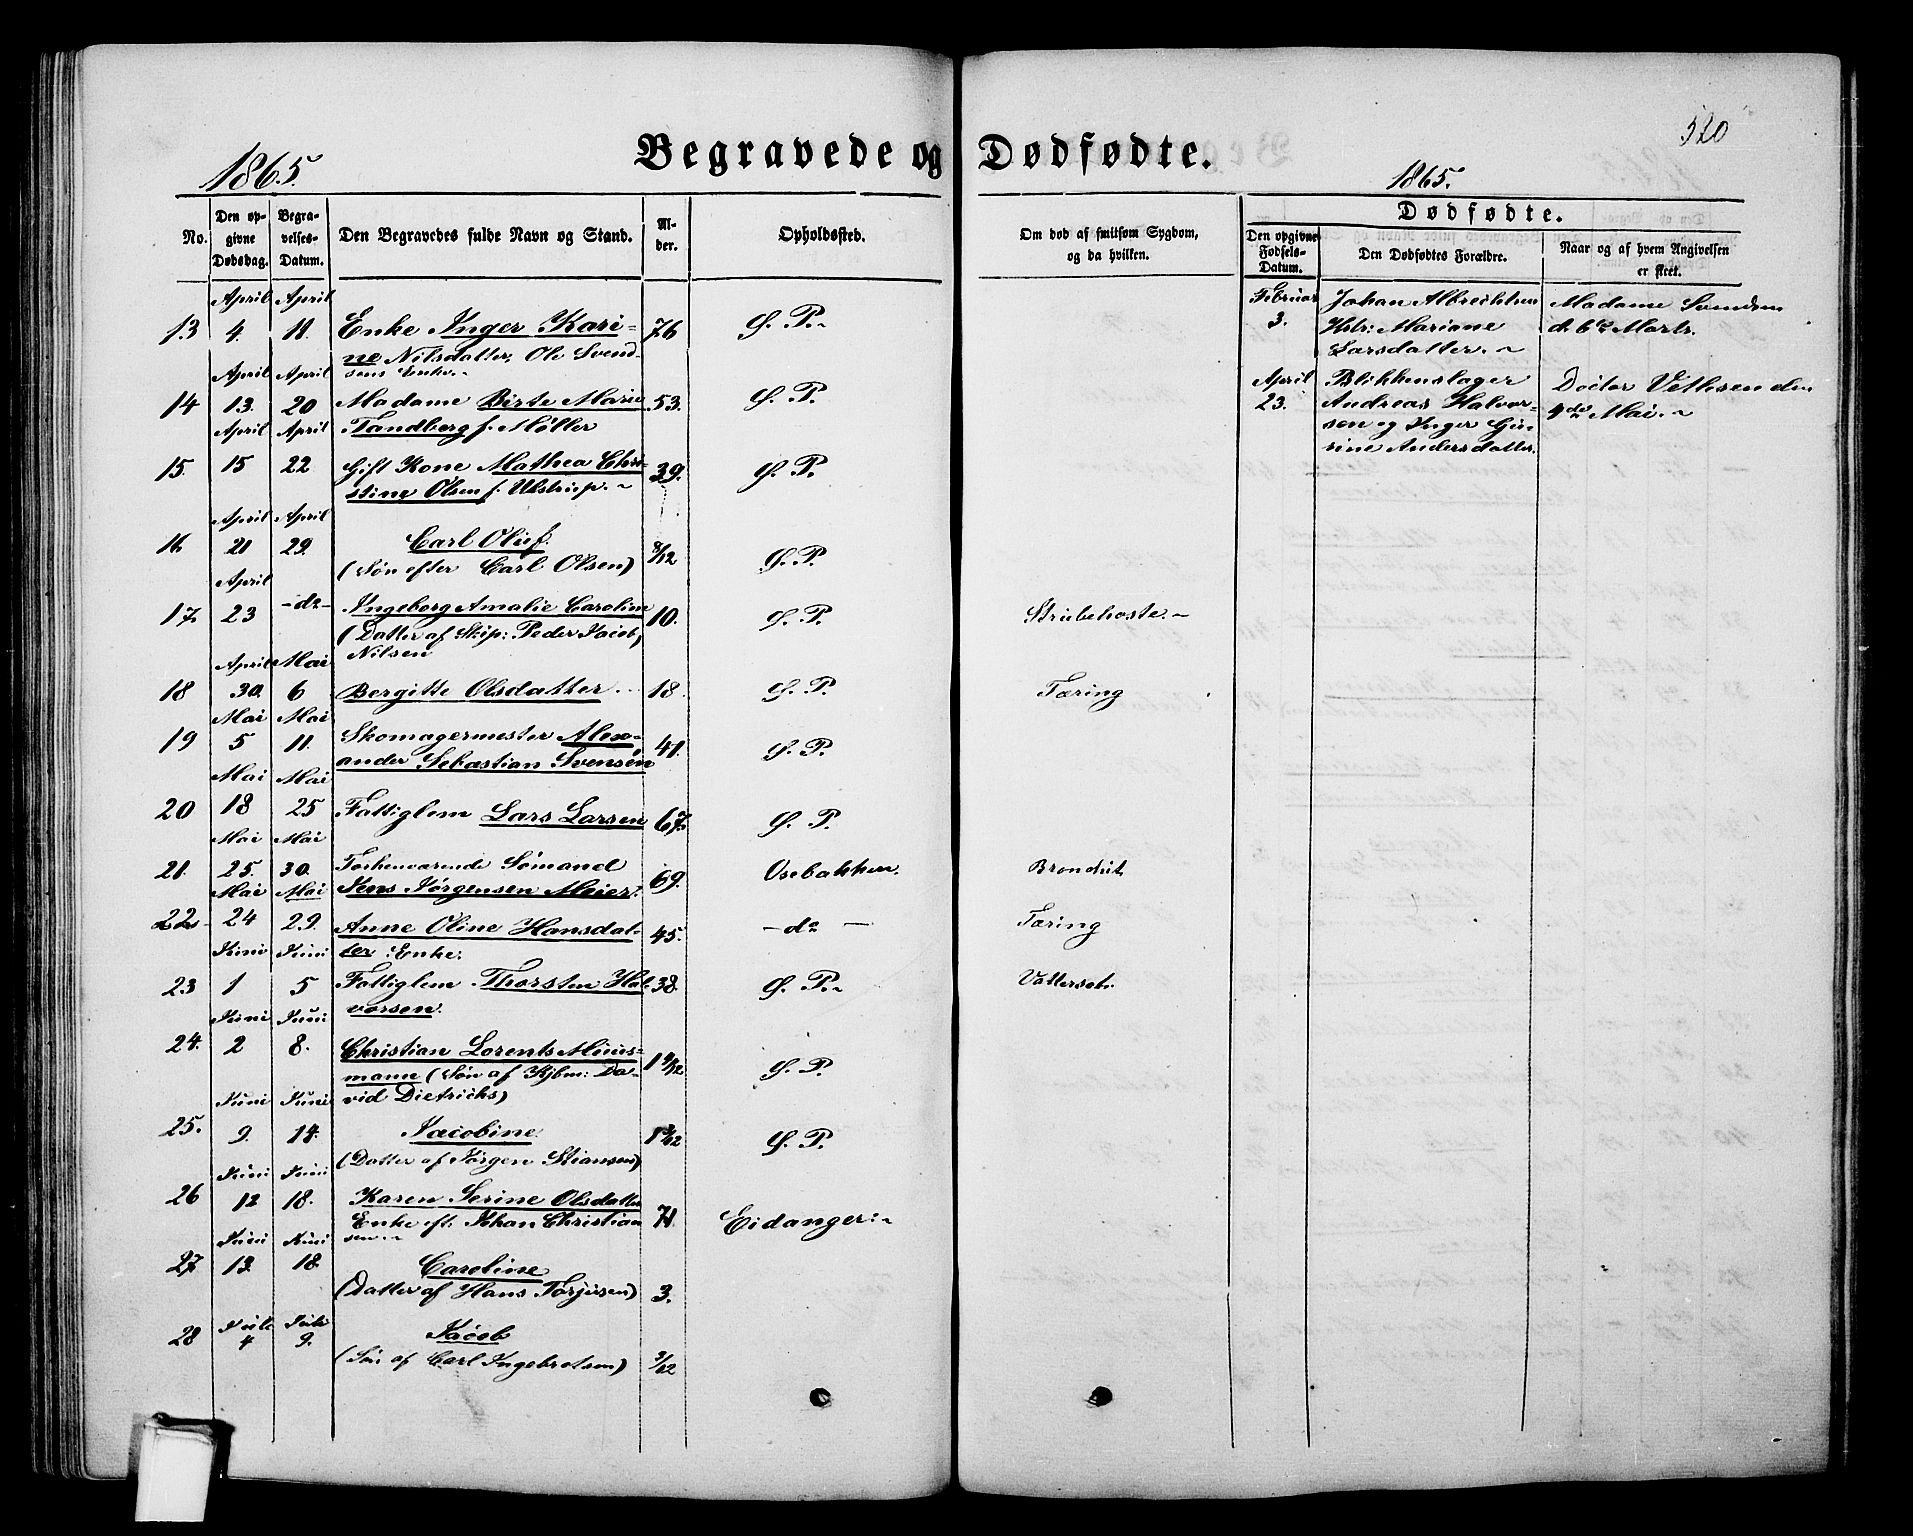 520
Begravede og Dødfødte.
1865.
1865.
No.
Den opgivne Dødsdag.
Begravelses-Datum.
Den Begravedes fulde Navn og Stand.
Alder.
Opholdssted.
Om død af smitsom Sygdom, og da hvilken.
Dødfødte.
Den opgivne Fødsels-Datum.
Den Dødfødtes Forældre.
Naar og af hvem Angivelsen er skeet.
April April
13 4. 11. Enke Inger Kari- 76 Ø. P.
ne Nilsdatter, Ole Svend-
sens Enke.
April April
14 13. 20 Madame Birte Marie 53. Ø. P.
Tandberg f. Møller
April April
15. 15 22 Gift Kone Mathea Chri- 39. Ø. P.
stine Olsen f. Ulstrup.
April April
16 21 29. Carl Oluf. 8/12 Ø. P.
(Søn efter Carl Olsen)
April
17. 23 -do- Ingeborg Amalie Caroline 10. Ø. P. Strubehoste.
(Datter af Skip: Peder Jacob
Nilsen
April Mai
18 30. 6 Bergitte Olsdatter 18. Ø. P. Tæring
Mai Mai
19 5 11. Skomagermester Alex- 41. Ø. P.
ander Sebastian Svensen
Mai Mai
20 18 25 Fattiglem Lars Larsen 67. Ø. P.
Mai Mai
21. 25. 30. Forhenværende Sømand 69. Osebakken. Brondkit
Jens Jørgensen Meier.
Mai Mai
22 24 29. Anne Oline Hansdat- 45. -do- Tæring
ter Enke.
Juni Juni
23 1 5 Fattiglem Thorsten Hal- 38. Ø. P. Vattersot.
vorsen.
Juni Juni
24. 2 8. Christian Lorents Muus- Ø. P.
mann (Søn af Kjbm: Da-
vid Dietrichs)
Juni Juni
25. 9. 14. Jacobine. 1 3/12 Ø. P.
(Datter af Jørgen Stiansen)
Juni Juni
26 12 18. Karen Serine Olsdatter 71. Eidanger
Enke eft. Johan Christian
sen
Juni Juni
27 13. 18. Caroline 3.
(Datter af Hans Torjusen)
Juli Juli
28 4 9. Jacob 3/12
(Søn af Carl Ingebretsen)
Februar Johan Albrechtsen Madame Svendsen
3. Hstr: Mariane d. 6te Marts.
Larsdatter.
April Blikkenslager Doctor Vethsen den
23. Andreas Halvor- 4de Mai.
sen og Inger Gu-
rine Andersdatter.